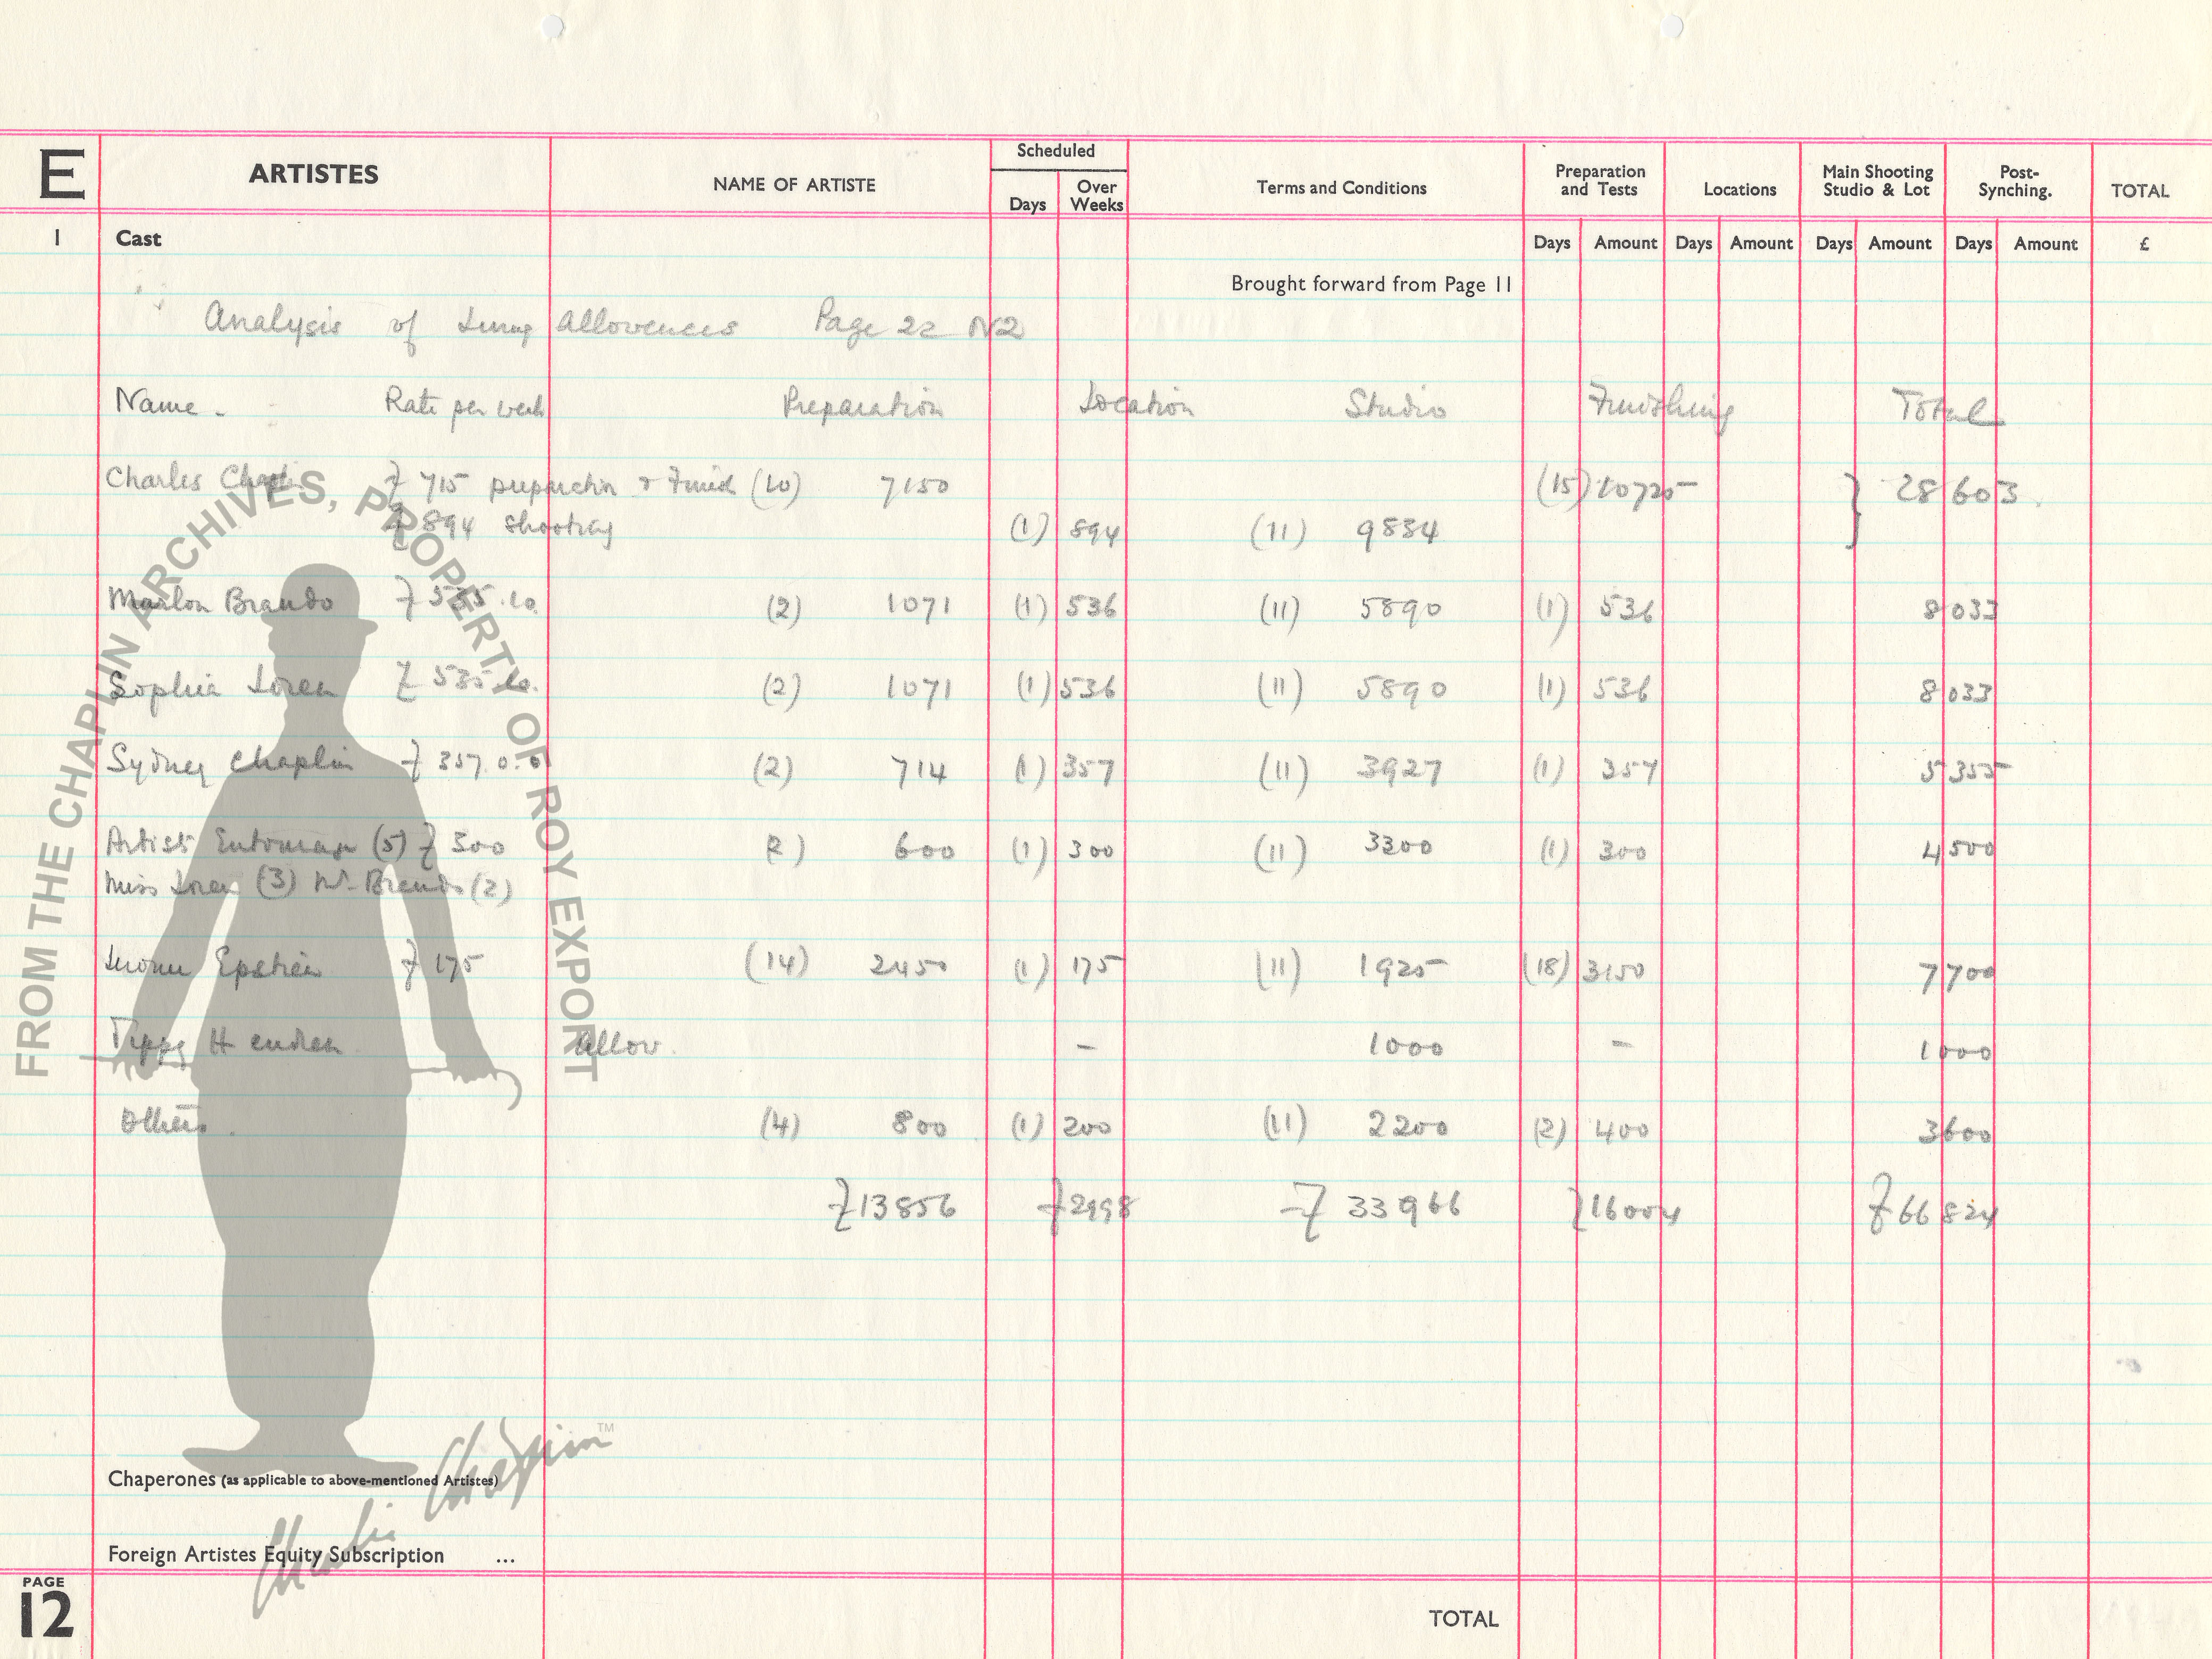 E ARTISTES NAME OF ARTISTE Scheduled Days Over Weeks Terms and Conditions Preparation and Tests Locations Main Shooting Studio & Lot Post-Synching. TOTAL
1 Cast Days Amount Days Amount Days Amount Days Amount £
Brought forward from Page 11
Analysis of Living allowences Page 22 N2
Name - Rate per week Preparation Location Studio Finishing Total
Charles Chaplin £ 715 preparation & Finish (10) 7150 (15) 10725 } 28603
£ 894 shooting (1) 894 (11) 9834
Marlon Brando £ 535.10. (2) 1071 (1) 536 (11) 5890 (1) 536 8033
Sophia Loren £ 535.10. (2) 1071 (1) 536 (11) 5890 (1) 536 8033
Sydney Chaplin £ 357.0.0 (2) 714 (1) 357 (11) 3927 (1) 357 5355
Artists Entourage (5) £ 300 (2) 600 (1) 300 (11) 3300 (1) 300 4500
Miss Loren (3) Mr Brando (2)
Epstein £ 175 (14) 2450 (1) 175 (11) 1925 (18) 3150 7700
Tippy Hendren allow. - 1000 - 1000
Others. (4) 800 (1) 200 (11) 2200 (2) 400 3600
£13856 £2998 £33966 £16004 £66824
FROM THE CHAPLIN ARCHIVES, PROPERTY OF ROY EXPORT
Charlie Chaplin™
Chaperones (as applicable to above-mentioned Artistes)
Foreign Artistes Equity Subscription ...
PAGE
12 TOTAL